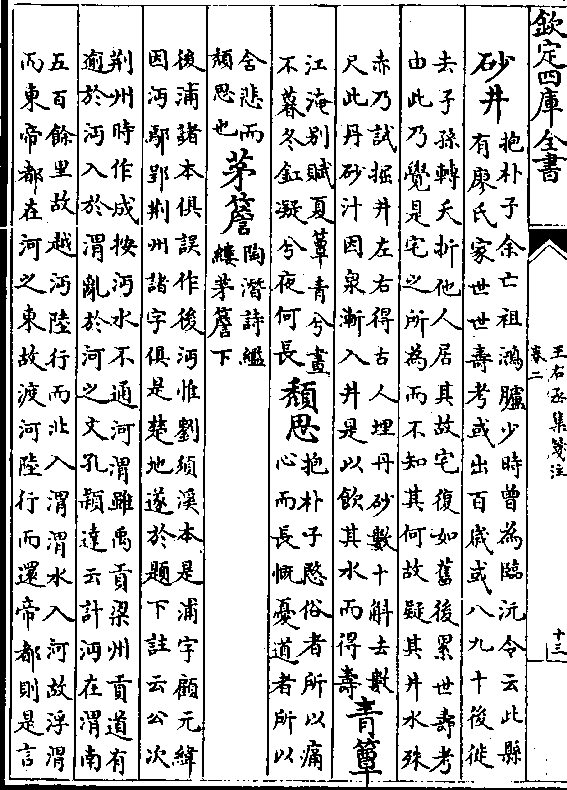 欽定四庫全書
王右丞集箋注
卷二
十三
砂井
抱朴子余亡祖鴻臚少時曾為臨沅令云此縣
有廖氏家世世壽考或出百歲或八九十後徙
去子孫轉夭折他人居其故宅復如舊後累世壽考
由此乃覺是宅之所為而不知其何故疑其井水殊
赤乃試掘井左右得古人埋丹砂數十斛去數
尺此丹砂汁因泉漸入井是以飲其水而得壽
青簟
江淹别賦夏簟青兮晝
不暮冬釭凝兮夜何長
頽思
抱朴子愍俗者所以痛
心而長慨憂道者所以
含悲而
頽思也
茅簷
陶潛詩繿
縷茅簷下
後浦諸本俱誤作後沔惟劉須溪本是浦字顧元緯
因沔鄢郢荆州諸字俱是楚地遂於題下註云公次
荆州時作成按沔水不通河渭雖禹貢梁州貢道有
逾於沔入於渭亂於河之文孔穎達云計沔在渭南
五百餘里故越沔陸行而北入渭渭水入河故浮渭
而東帝都在河之東故渡河陸行而還帝都則是言